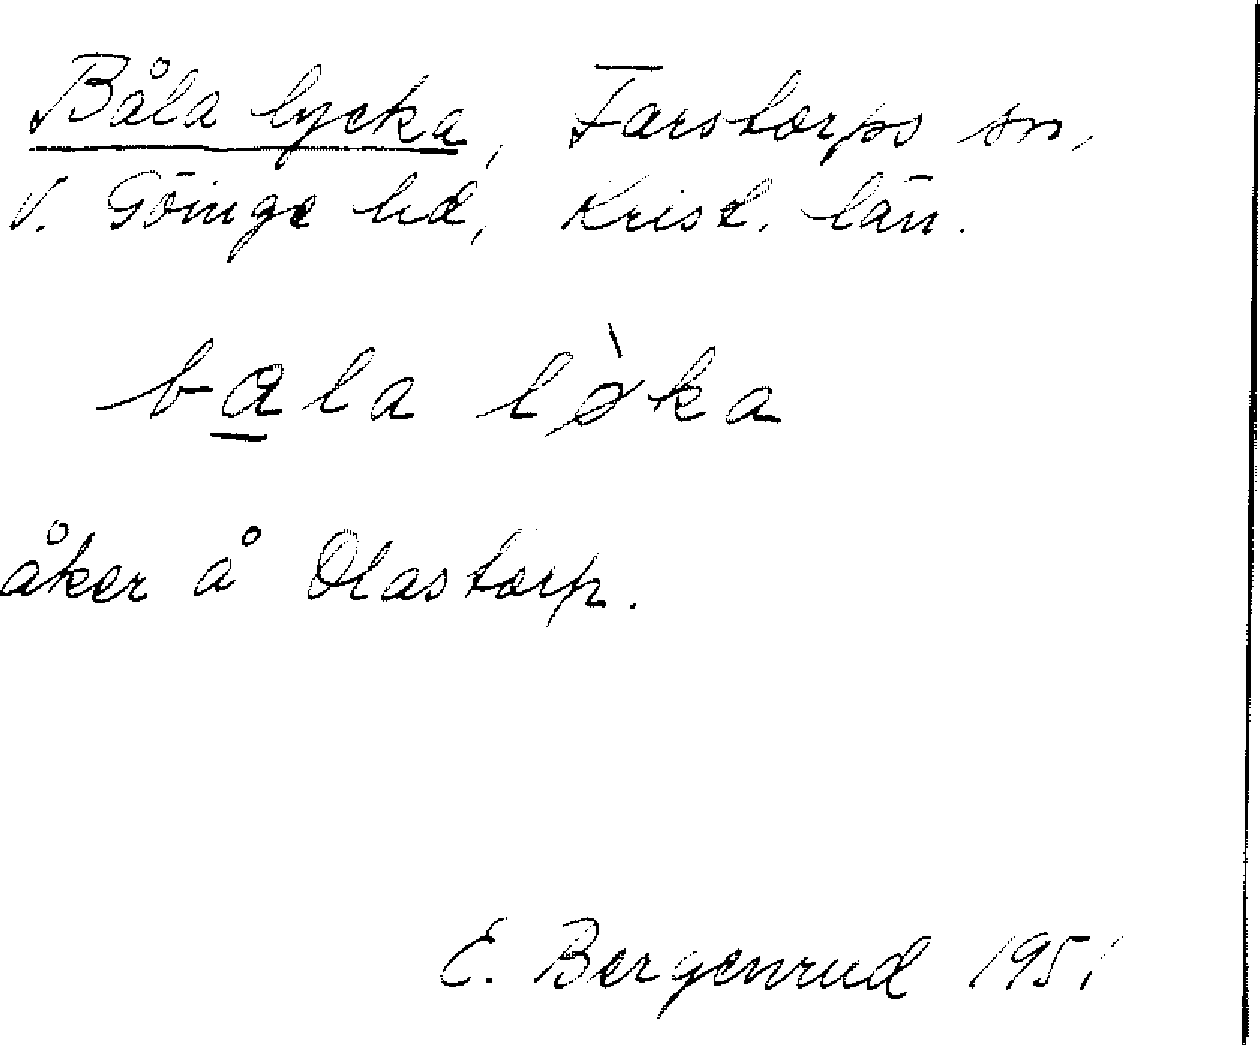 Båla lycka, Farstorps sn,
V. Göinge hd, Krist. län.
bala lø̀ka
åker å Olastorp.
E. Bergenrud 1951